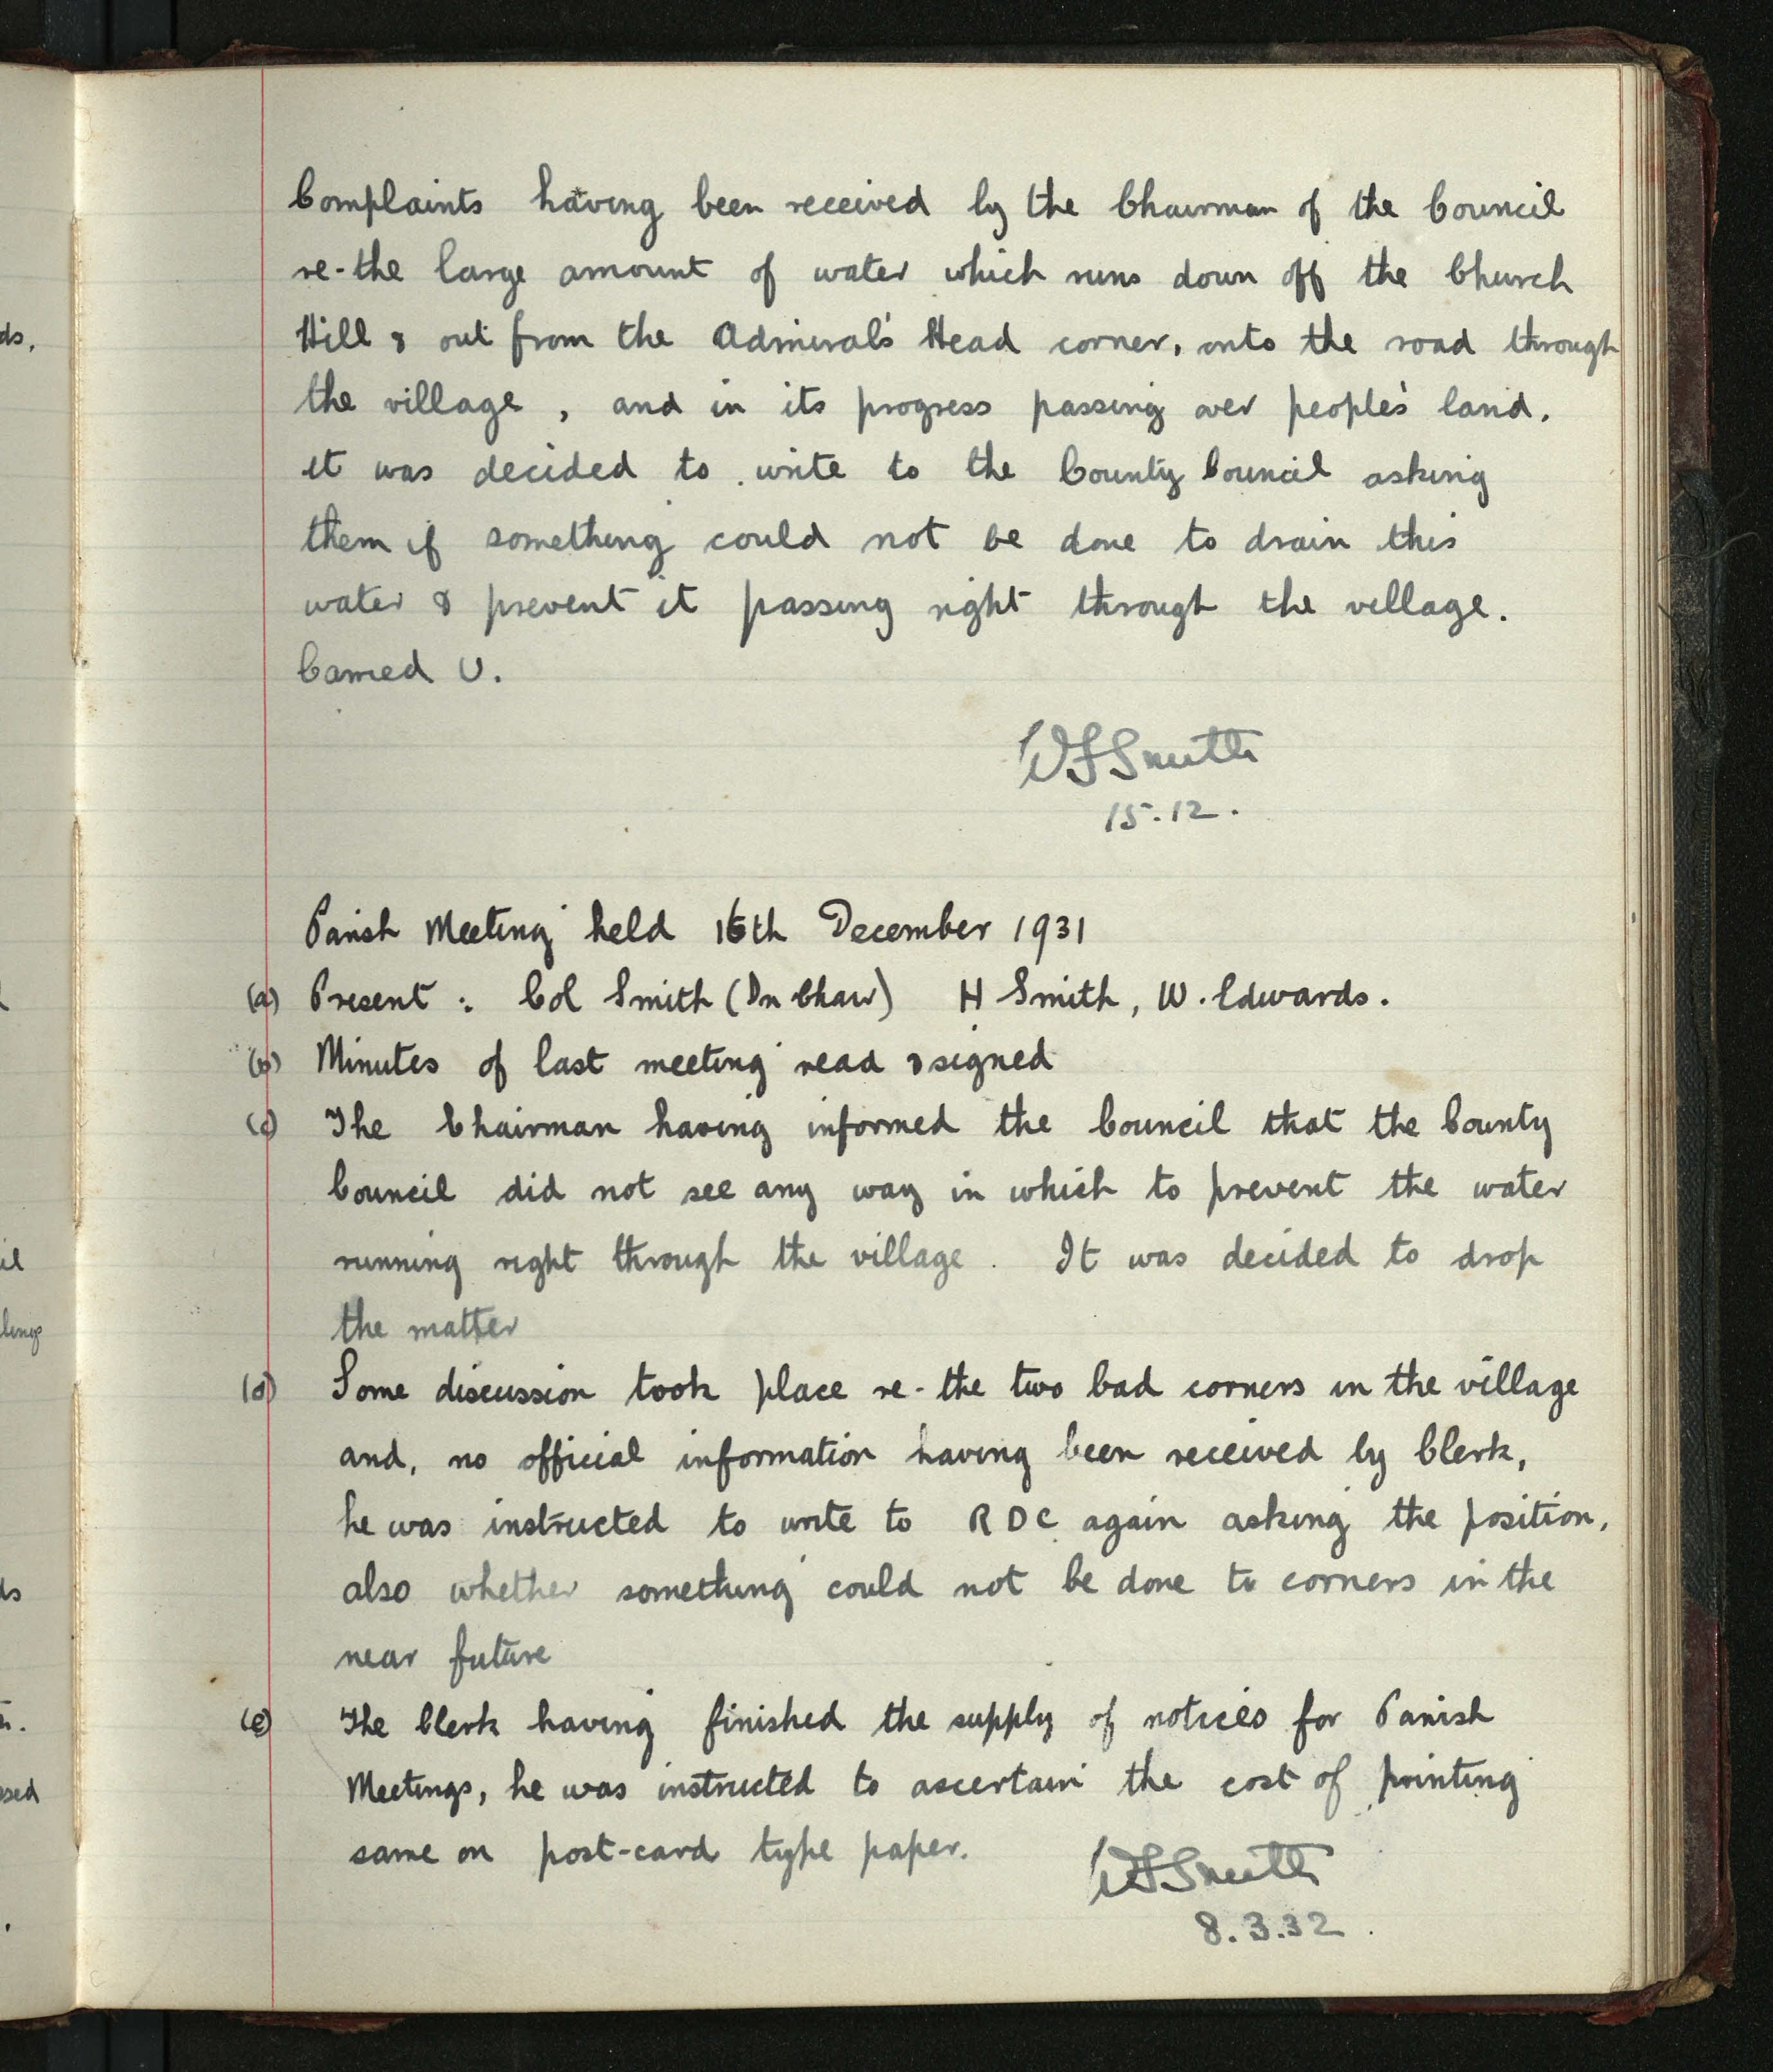 Complaints having been received by the Chairman of the Council
re-the large amount of water which runs down off the Church
Hill & out from the Admiral's Head corner, onto the road through
the village, and in its progress passing over people's land.
it was decided to write to the County Council asking
them if something could not be done to drain this
water & prevent it passing right through the village.
Carried U.
WFSmith
15.12.
Parish Meeting held 16th December 1931
(a) Present: Col Smith (In Chair) H Smith, W. Edwards.
(b) Minutes of last meeting read & signed
(c) The Chairman having informed the Council that the County
Council did not see any way in which to prevent the water
running right through the village. It was decided to drop
the matter
(d) Some discussion took place re-the two bad corners in the village
and, no official information having been received by Clerk,
he was instructed to write to RDC again asking the position,
also whether something could not be done to corners in the
near future
(e) The Clerk having finished the supply of notices for Parish
Meetings, he was instructed to ascertain the cost of printing
same on post-card type paper.
WFSmith
8.3.32.